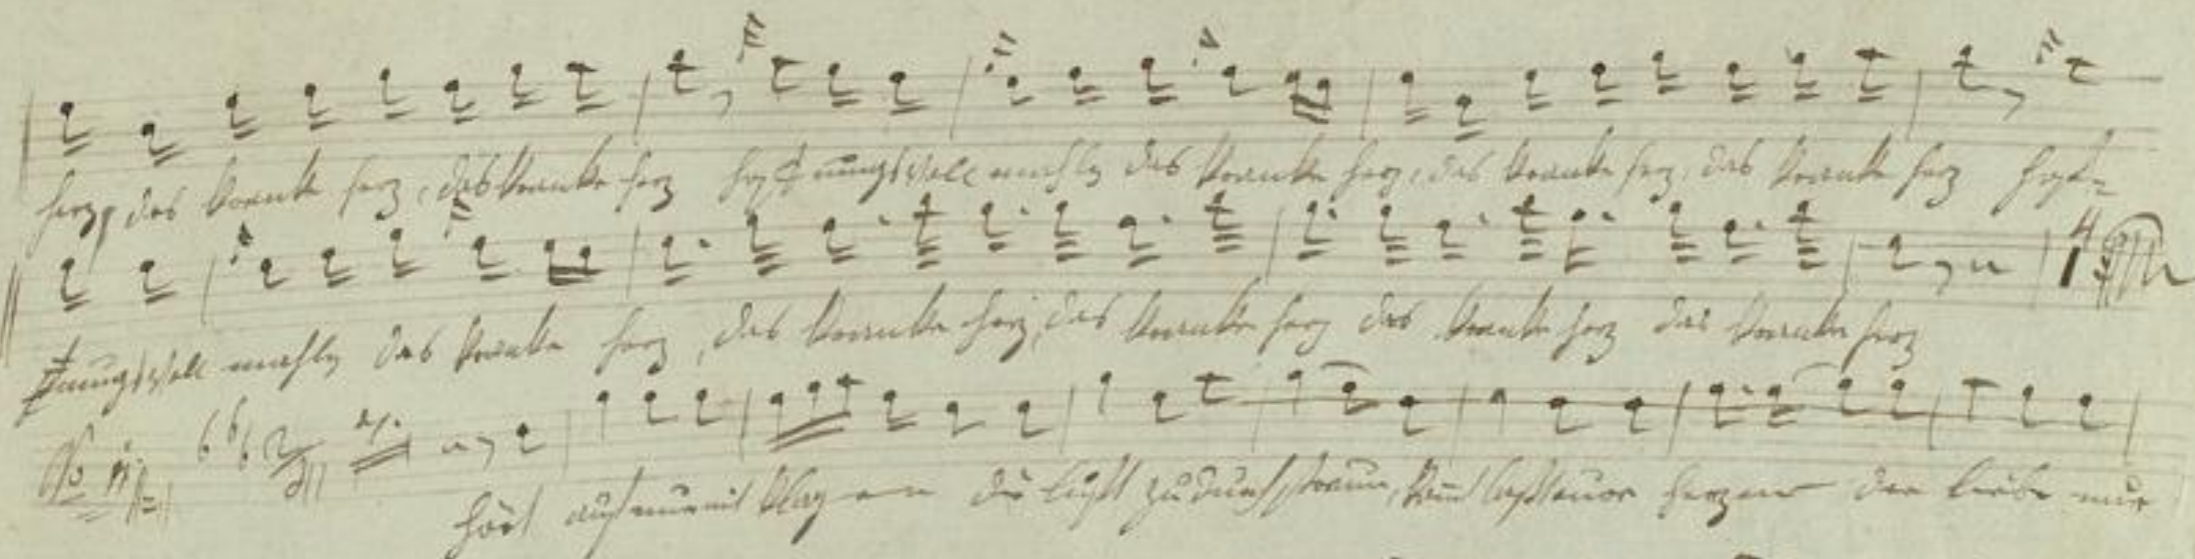 herz, das kranke herz, das kranke herz hoffnungsvoll das kranke herz, das kranke herz, das kranke herz hof-
fnungsvoll das kranke herz, das kranke herz, das kranke herz das kranke herz das kranke herz
hört auf nur mit klagen die luft zu durch euer herzen der liebe nur